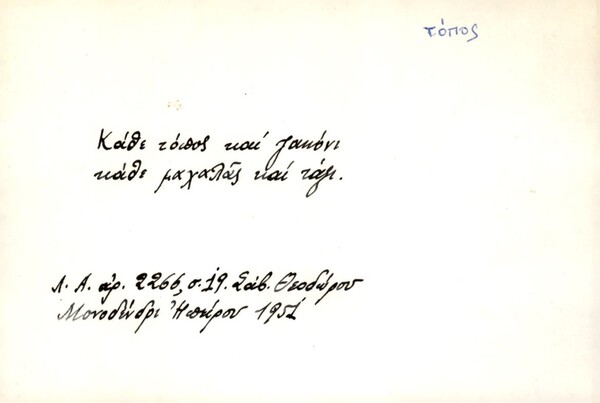 τόπος
Κάθε τόπος καί ζακόνι
κάθε μαχαλᾶς καί τάξι.
Λ. Α. ἀρ. 2266, σ. 19. Σάβ. Θεοδώρου
Μονοδένδρι Ἠπείρου 1951